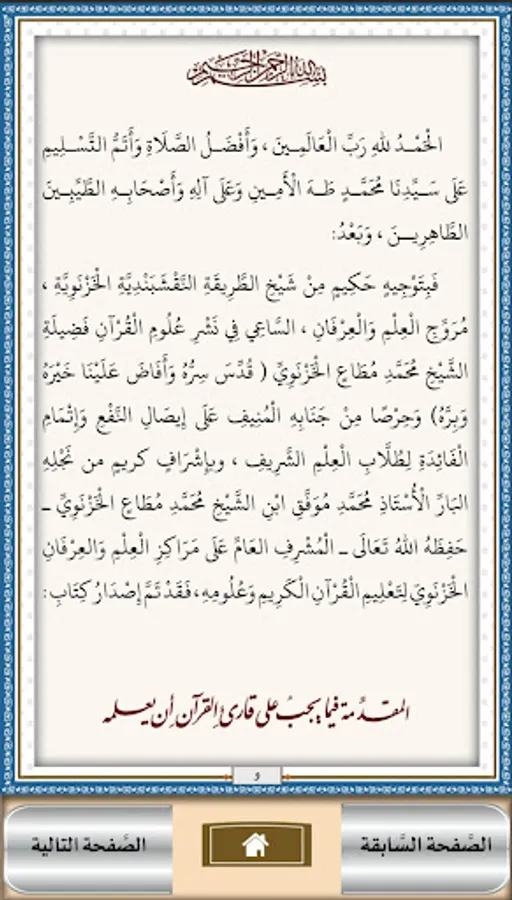 بِسْمِ اللهِ الرَّحْمٰنِ الرَّحِيمِ
الْحَمْـدُ لِلهِ رَبِّ الْعَالَمِـينَ ، وَأَفْضَـلُ الصَّلَاةِ وَأَتَمُّ التَّسْـلِيمِ
عَلَى سَـيِّدِنَا مُحَمَّـدٍ طَـهَ الْأَمِـينِ وَعَلَى آلِهِ وَأَصْحَابِـهِ الطَّيِّبِـينَ
الطَّاهِرِيـنَ ، وَبَعْدُ:
فَبِتَوْجِيهٍ حَكِيمٍ مِنْ شَيْخِ الطَّرِيقَةِ النَّقْشَبَنْدِيَّةِ الْخَزْنَوِيَّةِ ،
مُرَوِّجِ الْعِلْمِ وَالْعِرْفَانِ ، السَّاعِي فِي نَشْرِ عُلُومِ الْقُرْآنِ فَضِيلَةِ
الشَّيْخِ مُحَمَّدِ مُطَاعِ الْخَزْنَوِيِّ ( قُدِّسَ سِرُّهُ وَأَفَاضَ عَلَيْنَا خَيْرَهُ
وَبِرَّهُ) وَحِرْصًا مِنْ جَنَابِهِ الْمُنِيفِ عَلَى إِيصَالِ النَّفْعِ وَإِتْمَامِ
الْفَائِدَةِ لِطُلَّابِ الْعِلْمِ الشَّرِيفِ ، وبِإِشْرَافٍ كريمٍ من نَجْلِهِ
البَارِّ الْأُسْتَاذِ مُحَمَّدِ مُوَفَّقِ ابْنِ الشَّيْخِ مُحَمَّدِ مُطَاعِ الْخَزْنَوِيِّ ـ
حَفِظَهُ اللهُ تَعَالَى ـ الْمُشْرِفِ العَامِّ عَلَى مَرَاكِزِ الْعِلْمِ وَالعِرْفَانِ
الْخَزْنَوِيِّ لِتَعْلِيمِ الْقُرْآنِ الْكَرِيمِ وَعُلُومِهِ، فَقَدْ تَمَّ إِصْدَارُ كِتَابِ:
المقدِّمة فيما يجبُ على قارئِ القرآنِ أن يعلمه
و
الصَّفحة السَّابقة
الصَّفحة التالية